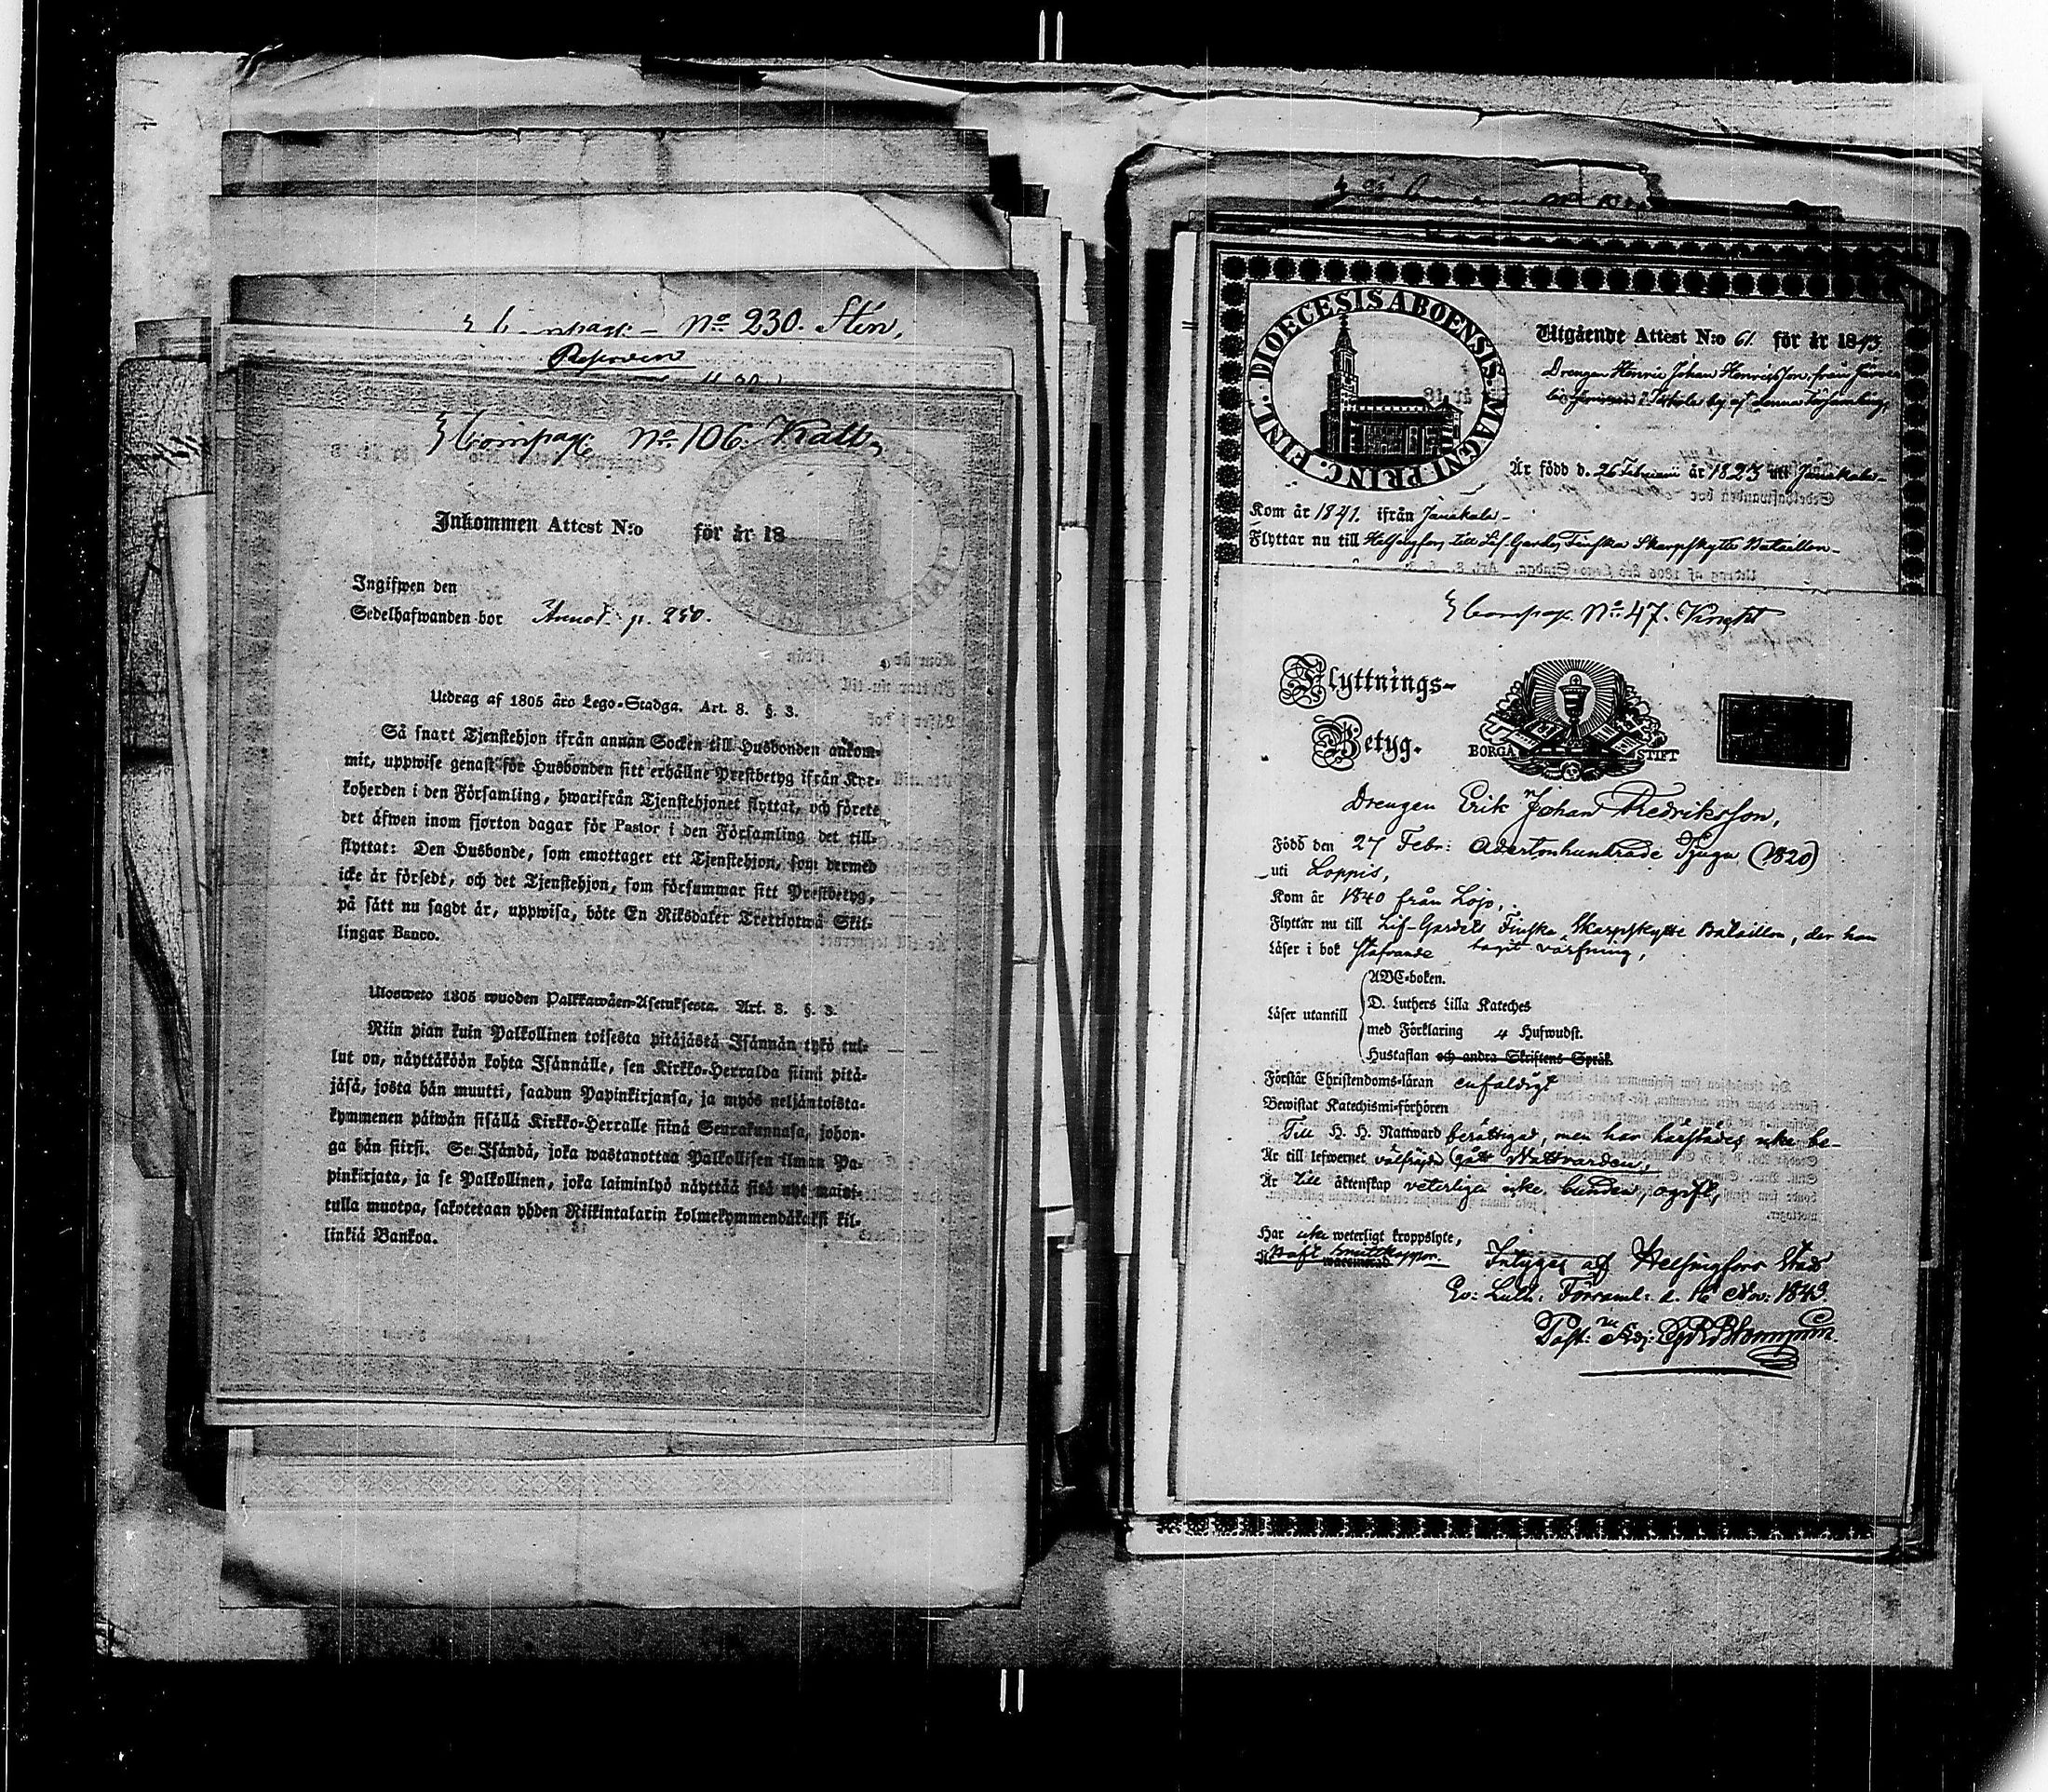 Compag: – No 230. Sten,
Reserven
3 Compag: No 106. Kall.
Inkommen Attest N:o för år 18
Ingifwen den
Sedelhafwanden bor Annot. p. 250.
Utdrag af 1805 års Lego-Stadga. Art. 8. §. 3.
Så snart Tjenstehjon ifrån annan Socken till Husbonden ankom-
mit, uppwise genast för Husbonden sitt erhållne Prestbetyg ifrån Kyr-
koherden i den Församling, hwarifrån Tjenstehjonet flyttat, och förete
det äfwen inom fjorton dagar för Pastor i den Församling det till-
flyttat: Den Husbonde, som emottager ett Tjenstehjon, som dermed
icke är försedt, och det Tjenstehjon, som försummar sitt Prestbetyg,
på sätt nu sagdt är, uppwisa, böte En Riksdaler Trettiotwå Skil-
lingar Banco.
Ulosweto 1805 wuoden Palkkawäen-Asetuksesta. Art. 8. §. 3.
Niin pian kuin Palkollinen toisesta pitäjästä Isännän tykö tul-
lut on, näyttäköön kohta Isännälle, sen Kirkko-Herralda siinä pitä-
jäsä, josta hän muutti, saadun Papinkirjansa, ja myös neljäntoista-
kymmenen päiwän sisällä Kirkko-Herralle siinä Seurakunnasa, johon-
ga hän siirsi. Se Isändä, joka wastanottaa Palkollisen ilman Pa-
pinkirjata, ja se Palkollinen, joka laiminlyö näyttää sitä nyt maini-
tulla muotoa, sakotetaan yhden Riikintalarin kolmekymmendäkaksi kil-
linkiä Bankoa.
FINL. DIOECESIS ABOENSIS. MAGNI PRINC.
Utgående Attest N:o 61 för år 1843
Drengen Henric Johan Henricsson från
by af denna Församling,
Är född d. 26 Februarii år 1823 uti Janakala
Kom år 1841. ifrån Janakala
Flyttar nu till Helsingfors till Lif-Gardes Finska Skarpskytte Bataillon
3 Compag. No 47. Knight
Flyttnings-
Betyg.
BORGÅ STIFT
Drengen Erik Johan Fredriksson,
Född den 27 Febr: Adertonhundrade Tjugu (1820)
uti Loppis,
Kom år 1840 från Lojo,
Flyttar nu till Lif-Gardets Finska Skarpskytte Bataillon, der han
Läser i bok stafvande tagit värfning,
Läser utantill
ABC-boken.
D. Luthers Lilla Kateches
med Förklaring 4 Hufwudst.
Hustaflan och andra Skriftens Språk.
Förstår Christendoms-läran enfaldigt
Bewistat Katechismi-förhören
Till H. H. Nattward berättigad, men har härstädes icke be-
Är till lefwernet välfräjdad gått Nattvarden,
Är till äktenskap veterligen icke bunden, ogift,
Har icke weterligt kroppslyte,
Haft Smittkoppor.
Intygas af Helsingfors Stads
Ev: Luth: Församl: d. 16 Nov: 1843.